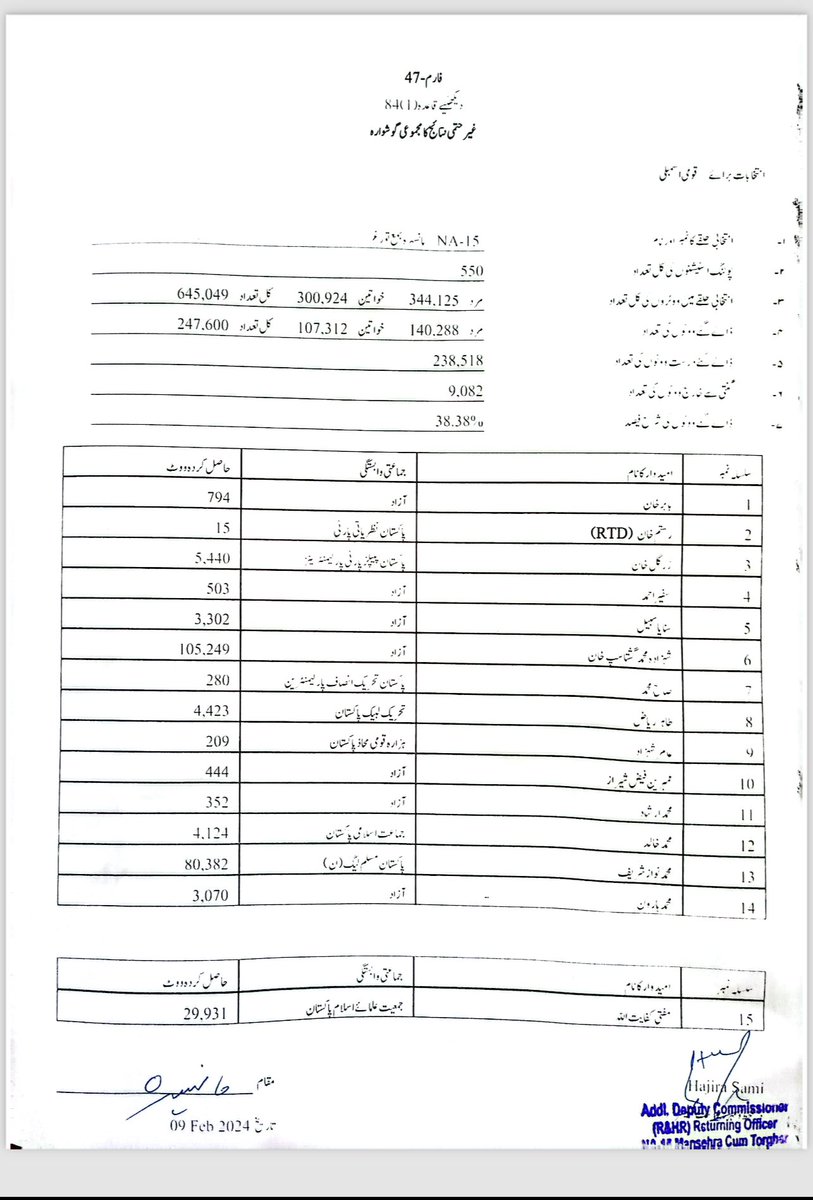 فارم-47
دیکھیے قاعدہ (1)84
غیر حتمی نتائج کا مجموعی گوشوارہ
انتخابات برائے قومی اسمبلی
۱- انتخابی حلقے کا نمبر اور نام NA-15 مانسہرہ بمع تورغر
۲- پولنگ اسٹیشنوں کی کل تعداد 550
۳- انتخابی حلقے میں ووٹروں کی کل تعداد مرد 344,125 خواتین 300,924 کل تعداد 645,049
۴- ڈالے گئے ووٹوں کی تعداد مرد 140,288 خواتین 107,312 کل تعداد 247,600
۵- ڈالے گئے درست ووٹوں کی تعداد 238,518
۶- گنتی سے خارج ووٹوں کی تعداد 9,082
۷- ڈالے گئے ووٹوں کی شرح فیصد 38.38%
سلسلہ نمبر امیدوار کا نام جماعتی وابستگی حاصل کردہ ووٹ
1 بابر خان آزاد 794
2 رستم خان (RTD) پاکستان نظریاتی پارٹی 15
3 زرگل خان پاکستان پیپلز پارٹی پارلیمنٹیرینز 5,440
4 سفیر احمد آزاد 503
5 سنایا سبیل آزاد 3,302
6 شہزادہ محمد گشتاسپ خان آزاد 105,249
7 صالح محمد پاکستان تحریک انصاف پارلیمنٹیرین 280
8 طاہر ریاض تحریک لبیک پاکستان 4,423
9 عامر شہزاد ہزارہ قومی محاذ پاکستان 209
10 عنبرین فیض شیراز آزاد 444
11 محمد ارشاد آزاد 352
12 محمد خالد جماعت اسلامی پاکستان 4,124
13 محمد نواز شریف پاکستان مسلم لیگ (ن) 80,382
14 محمد ہارون آزاد 3,070
سلسلہ نمبر امیدوار کا نام جماعتی وابستگی حاصل کردہ ووٹ
15 مفتی کفایت اللہ جمعیت علمائے اسلام پاکستان 29,931
مقام مانسہرہ
تاریخ 09 Feb 2024
Hajira Sami
Addl. Deputy Commissioner
(R&HR) Returning Officer
NA-15 Mansehra Cum Torghar